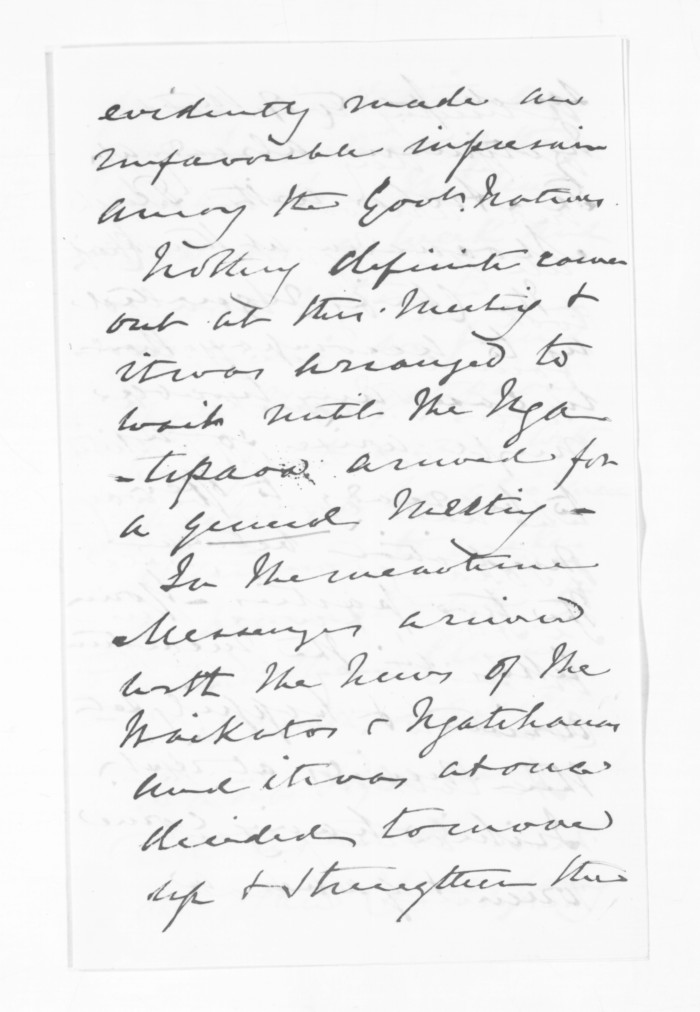 evidently made an
unfavorible impression
among the Govt. Natives.
Nothing definite comes
out at this Meeting &
it was arranged to
wait until the Nga
-tipaoa arrived for
a general Meeting -
In the meantime
Messengers arrived
with the news of the
Waikatos & Ngatihauas
and it was at once
decided to move
up & strengthen the